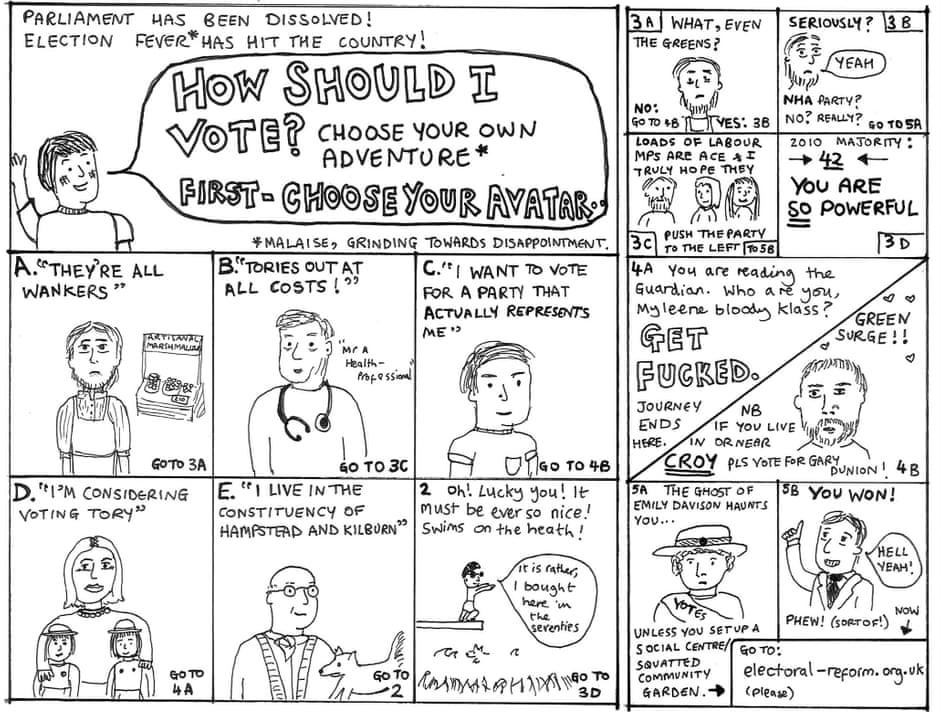 PARLIAMENT HAS BEEN DISSOLVED!
ELECTION FEVER* HAS HIT THE COUNTRY!
HOW SHOULD I
VOTE? CHOOSE YOUR OWN
ADVENTURE*
FIRST - CHOOSE YOUR AVATAR..
*MALAISE, GRINDING TOWARDS DISAPPOINTMENT.
A. "THEY'RE ALL
WANKERS"
ARTISANAL
MARSHMALLOWS
GO TO 3A
B. "TORIES OUT AT
ALL COSTS!"
"Mr A
Health-
Professional"
GO TO 3C
C. "I WANT TO VOTE
FOR A PARTY THAT
ACTUALLY REPRESENTS
ME"
GO TO 4B
D. "I'M CONSIDERING
VOTING TORY"
GO TO
4A
E. "I LIVE IN THE
CONSTITUENCY OF
HAMPSTEAD AND KILBURN"
GO TO
2
2 Oh! Lucky you! It
must be ever so nice!
Swims on the heath!
It is rather,
I bought
here in
the
seventies
GO TO
3D
3A WHAT, EVEN
THE GREENS?
NO:
GO TO 4B
YES: 3B
SERIOUSLY? 3B
YEAH
NHA PARTY?
NO? REALLY? GO TO 5A
LOADS OF LABOUR
MPS ARE ACE & I
TRULY HOPE THEY
PUSH THE PARTY
TO THE LEFT TO 5B
3C
2010 MAJORITY:
→ 42 ←
YOU ARE
SO POWERFUL
3D
4A You are reading the
Guardian. Who are you,
Myleene bloody Klass?
GET
FUCKED.
JOURNEY
ENDS
HERE.
GREEN
SURGE!!
NB
IF YOU LIVE
IN OR NEAR
CROY PLS VOTE FOR GARY
DUNION! 4B
5A THE GHOST OF
EMILY DAVISON HAUNTS
YOU...
VOTES
UNLESS YOU SET UP A
SOCIAL CENTRE/
SQUATTED
COMMUNITY
GARDEN. →
5B YOU WON!
HELL
YEAH!
PHEW! (SORT OF!)
NOW
↓
GO TO:
electoral-reform.org.uk
(please)